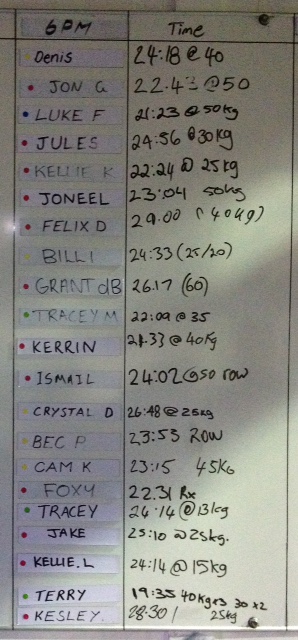 6PM Time
Denis 24:18 @ 40
JON G 22.43 @50
LUKE F 21:23 @ 50kg
JULES 24:56 @ 30kg
KELLIE K 22:24 @ 25kg
JONEEL 23:04 50kg
FELIX D 29.00 (40kg)
BILLI 24:33 (25/20)
GRANT dB 26.17 (60)
TRACEY M 22:09 @ 35
KERRIN 21.33 @ 40kg
ISMAIL 24:02 @50 row
CRYSTAL D 26:48 @ 25kg
BEC P 23:53 ROW
CAM K 23:15 45KG
FOXY 22.31 Rx
TRACEY 26:14 @ 13kg
JAKE 25:10 @ 25kg.
KELLIE.L 24:14 @ 15kg
TERRY 19:35 40kg x3 30 x2
KESLEY. 28:30 / 25kg